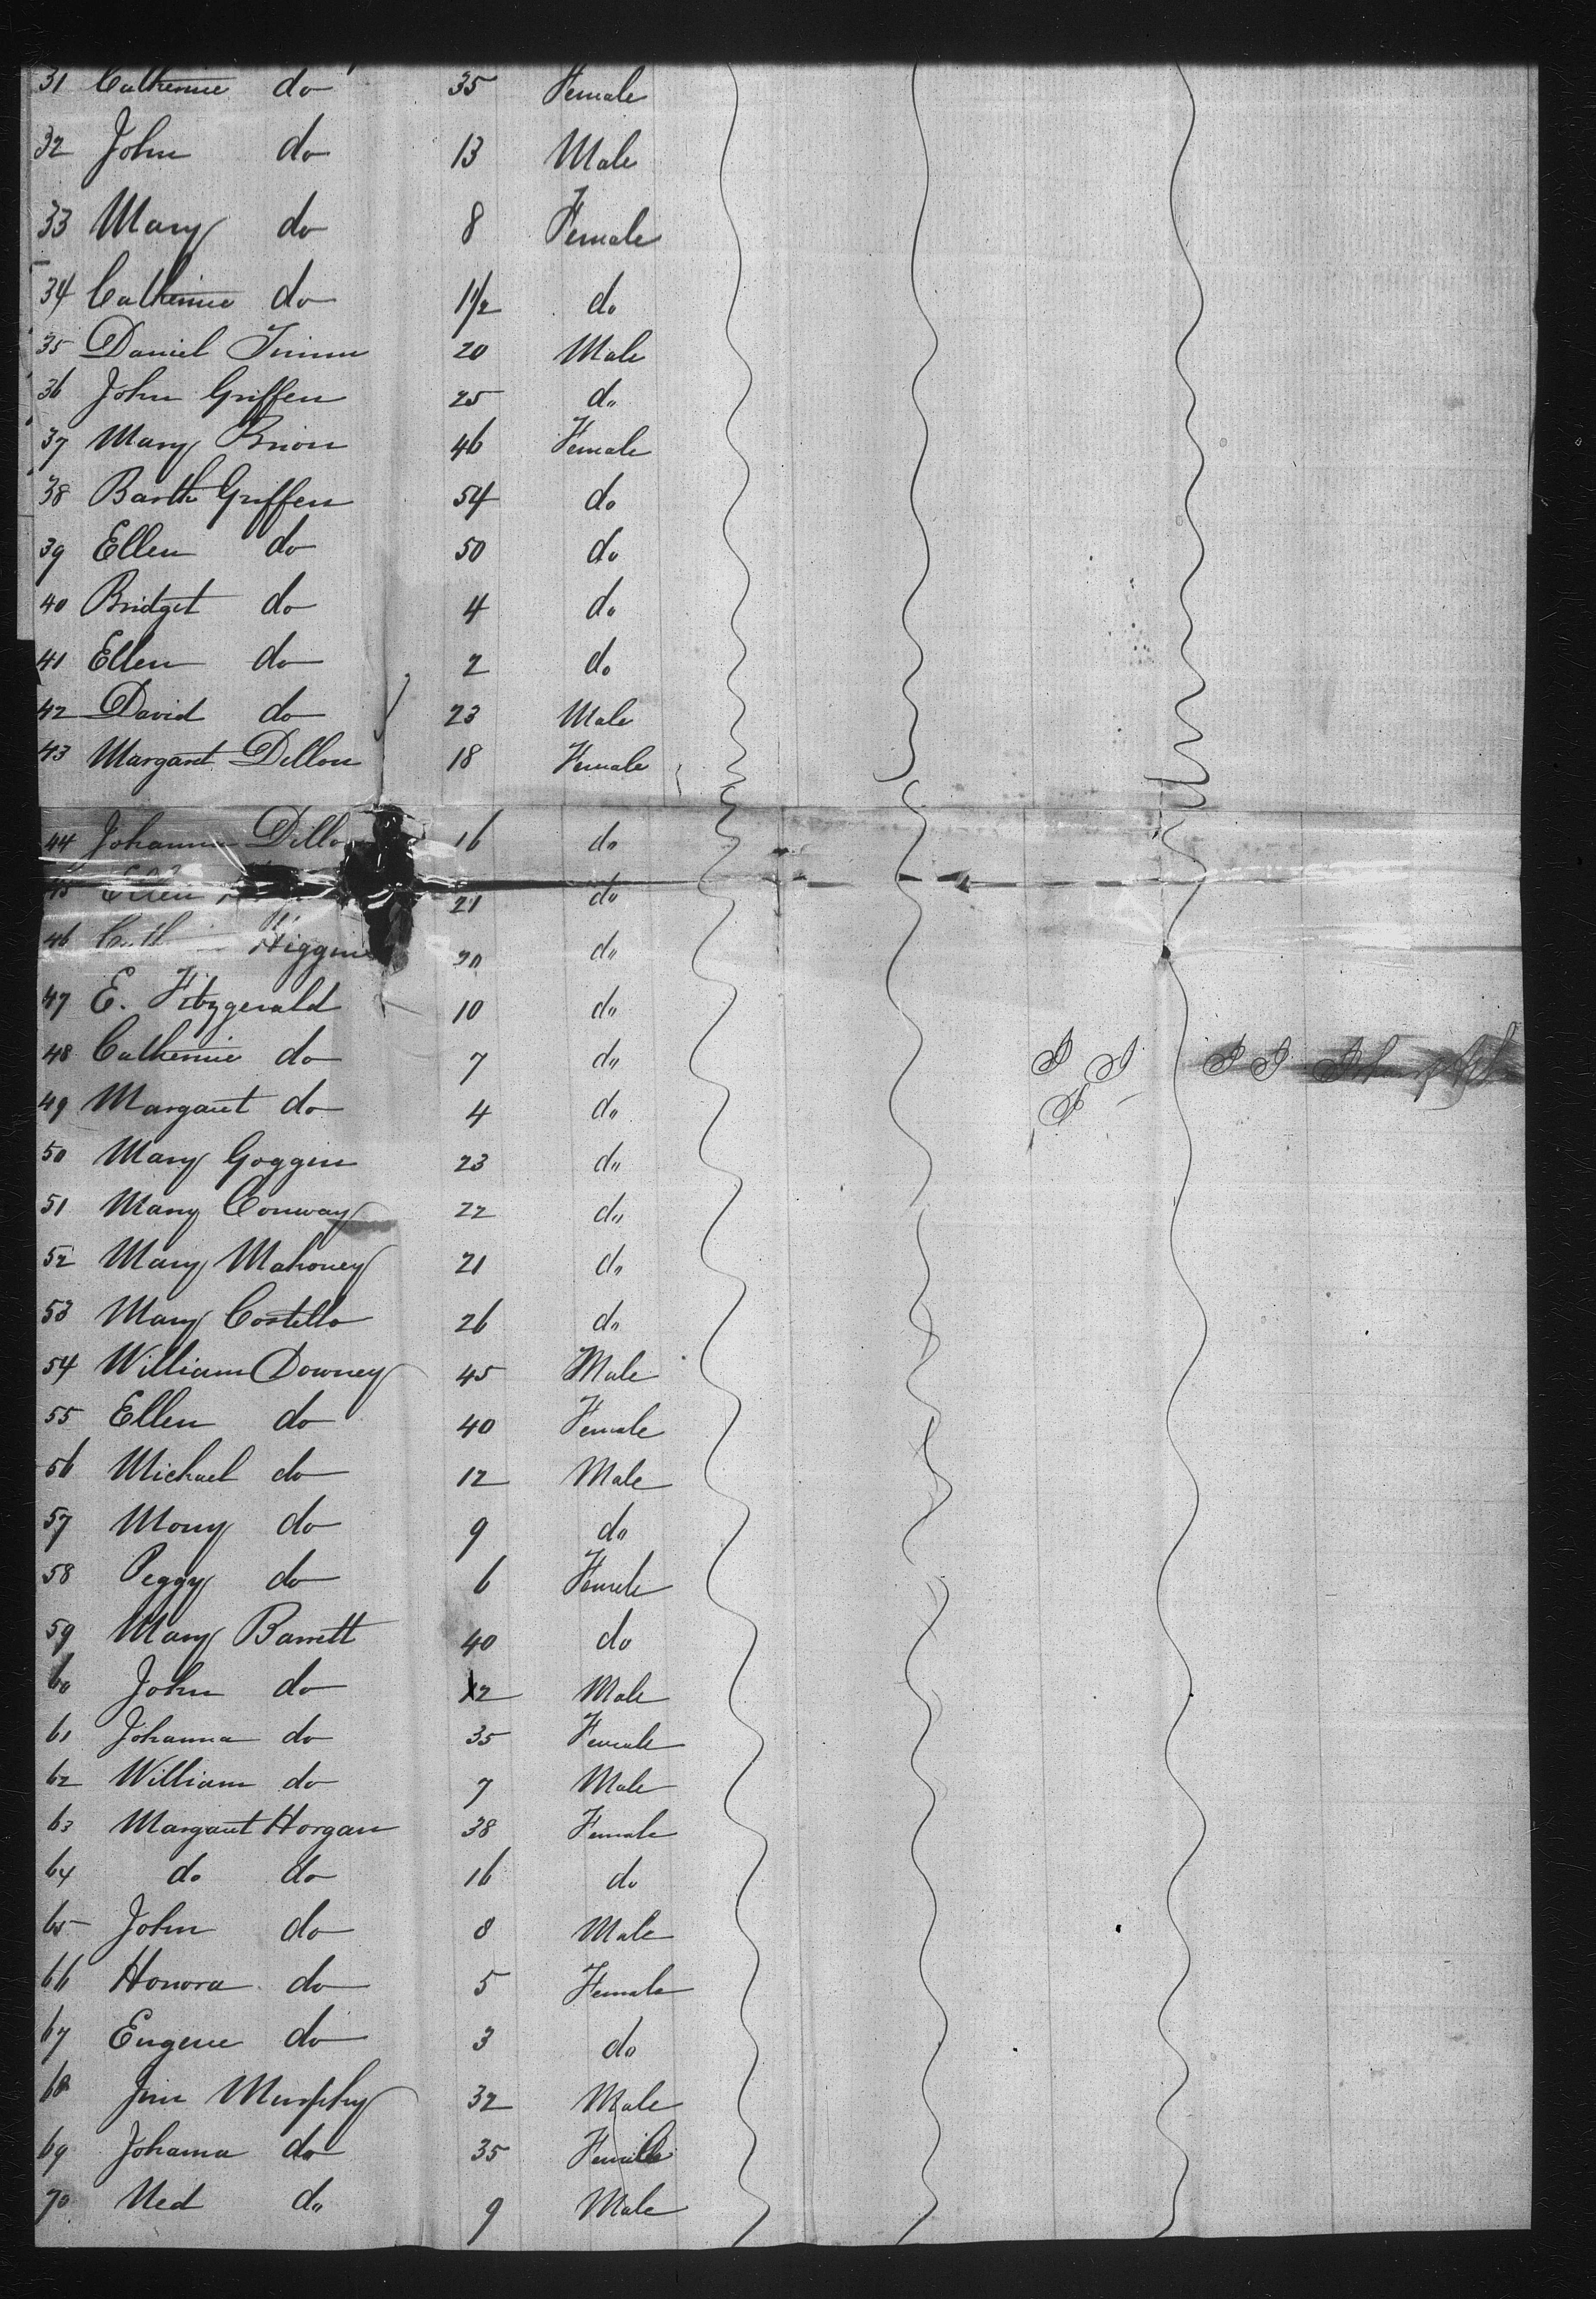 31 Catherine do 35 Female
32 John do 13 Male
33 Mary do 8 Female
34 Catherine do 1 1/2 do
35 Daniel 20 Male
36 John Griffen 25 do
37 Mary Brion 46 Female
38 Barth Griffen 54 do
39 Ellen do 50 do
40 Bridget do 4 do
41 Ellen do 2 do
42 David do 23 Male
43 Margaret Dillon 18 Female
44 Johanna Dillo 16 do
45 Ellen 21 do
46 Higgin do
47 E. Fitzgerald 10 do
48 Catherine do 7 do
49 Margaret do 4 do
50 Mary Goggin 23 do
51 Mary Conway 22 do
52 Mary Mahoney 21 do
53 Mary Costello 26 do
54 William Downey 45 Male
55 Ellen do 40 Female
56 Michael do 12 Male
57 Mony do 9 do
58 Peggy do 6 Female
59 Mary Barrett 40 do
60 John do 12 Male
61 Johanna do 35 Female
62 William do 7 Male
63 Margaret Horgan 38 Female
64 do do 16 do
65 John do 8 Male
66 Honora do 5 Female
67 Eugene do 3 do
68 Jim Murphy 32 Male
69 Johanna do 35 Female
70 Ned do 9 Male